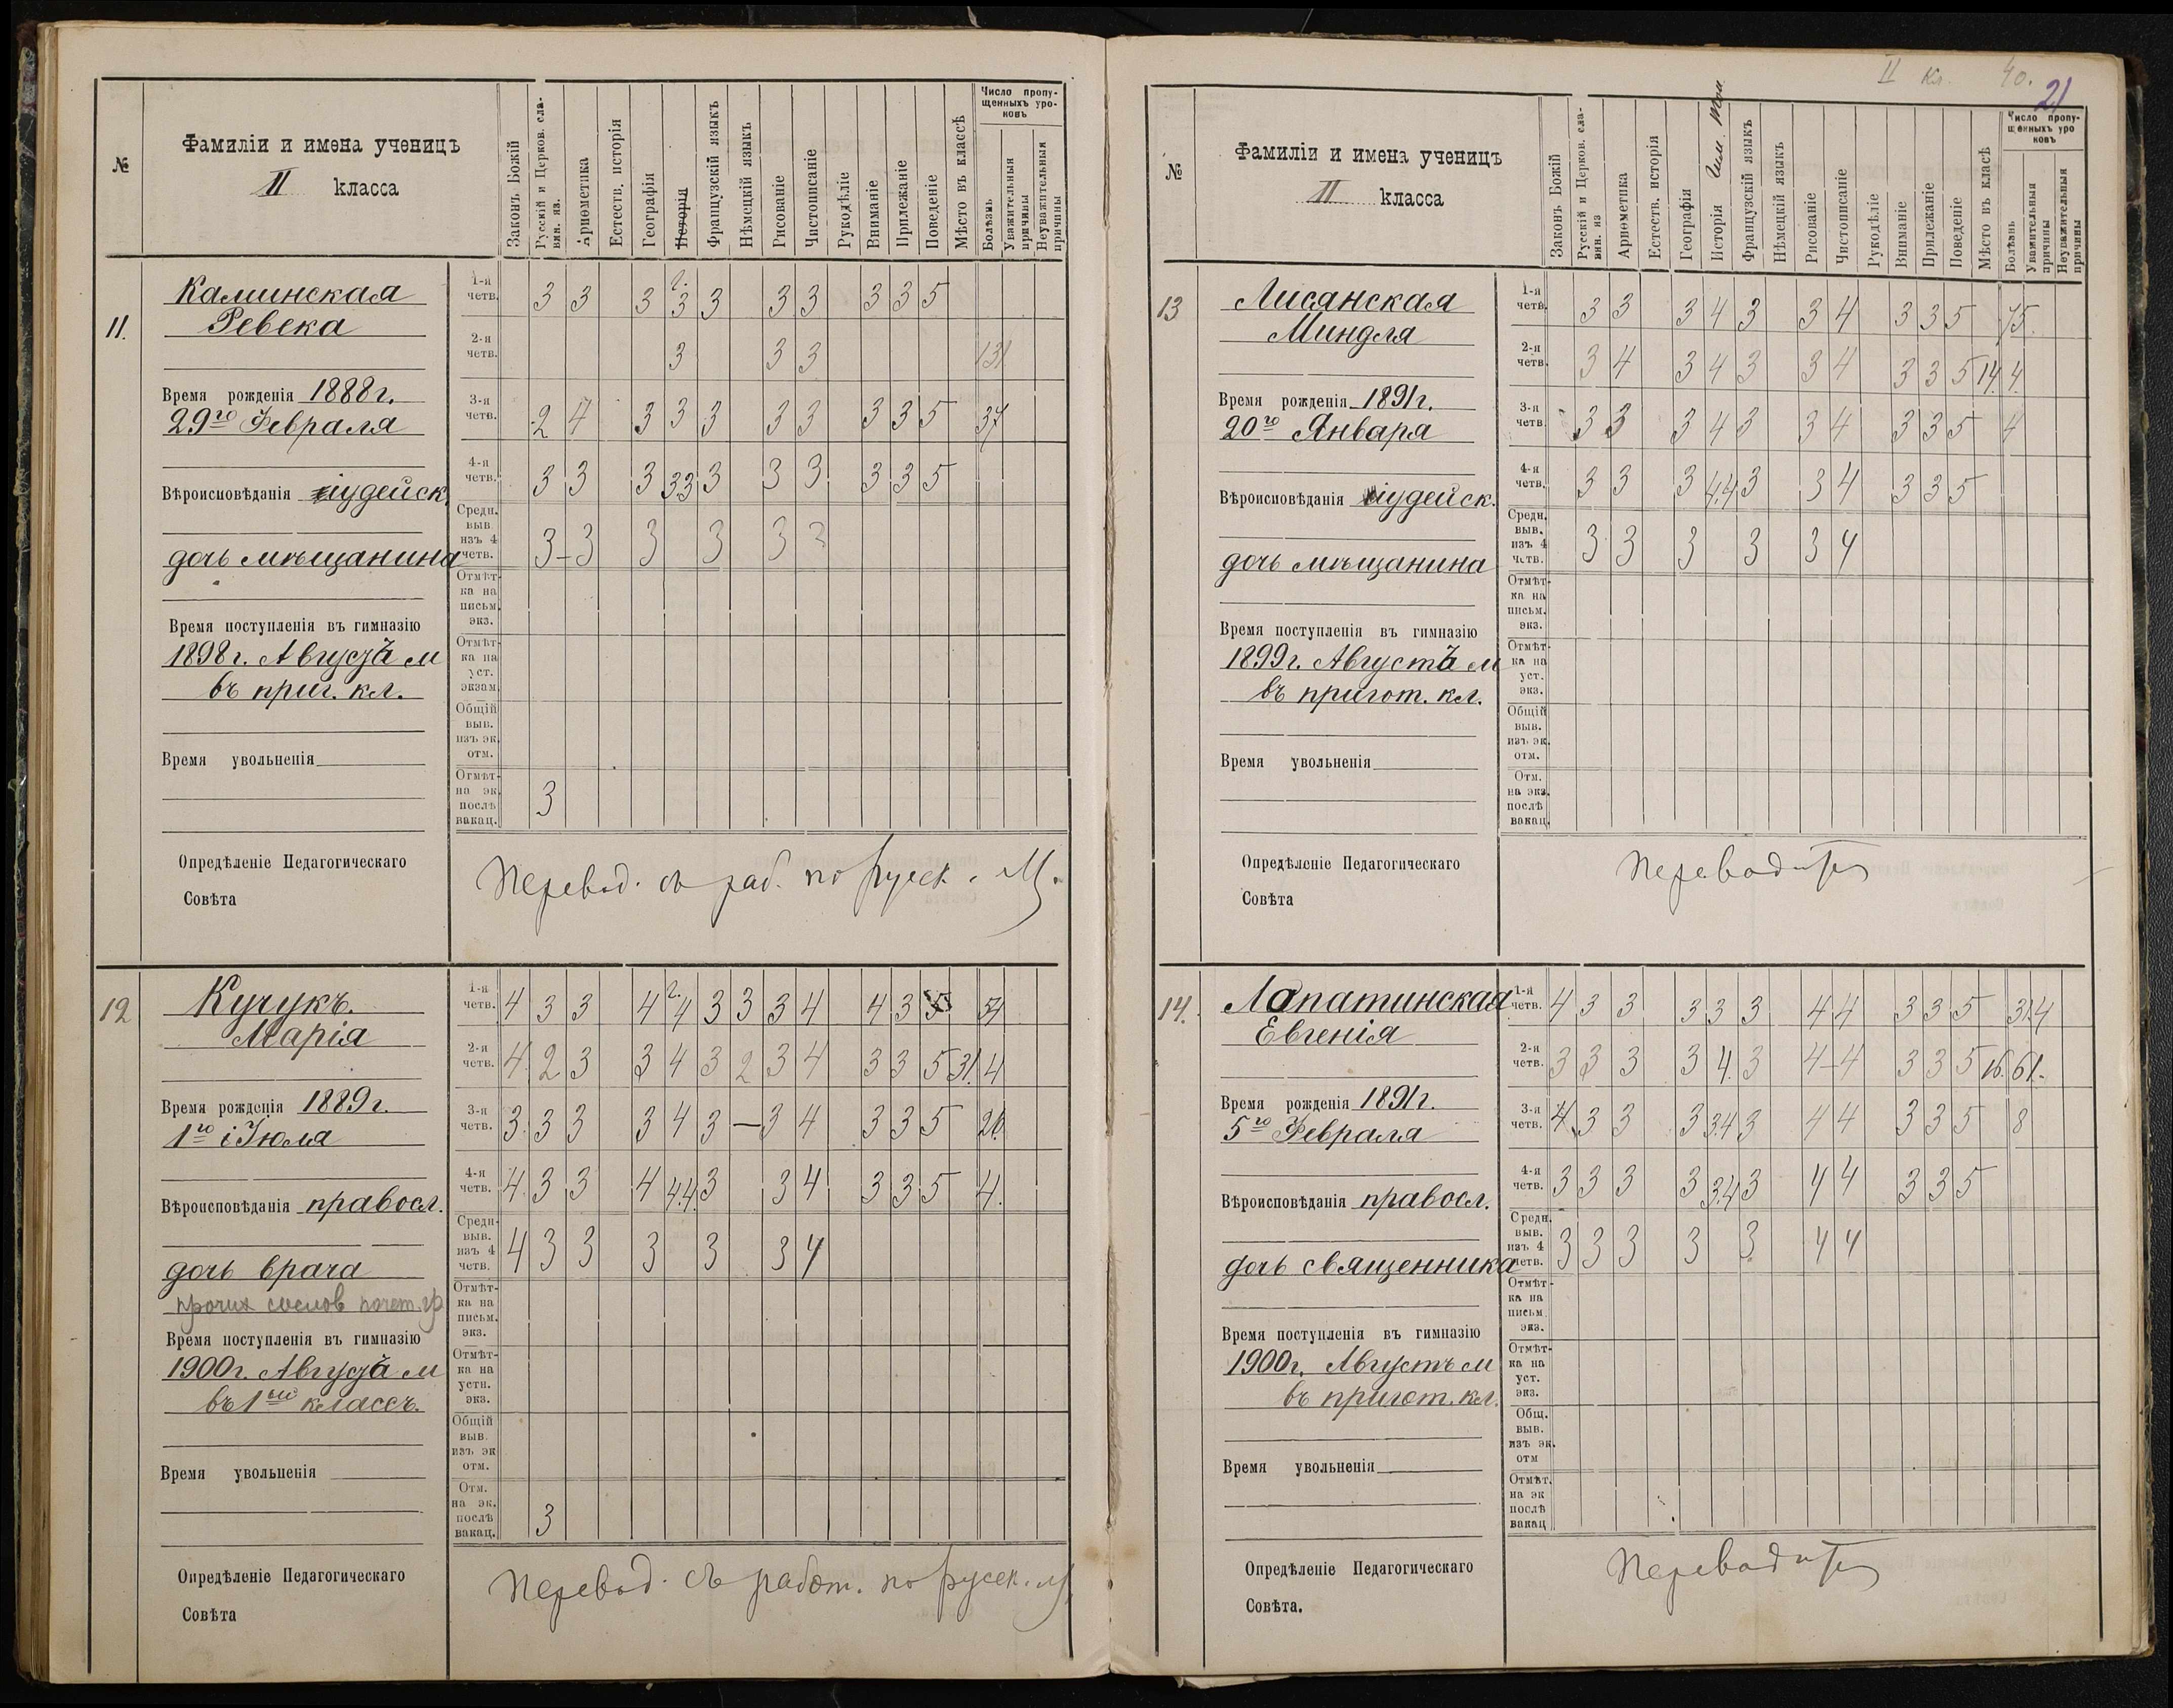 №
Фамиліи и имена ученицъ
II класса
Законъ Божій
Русскій и Церков. сла-
вян. яз.
Ариѳметика
Естеств. исторія
Географія
Исторія
Французскій языкъ
Нѣмецкій языкъ
Рисованіе
Чистописаніе
Рукодѣліе
Вниманіе
Прилежаніе
Поведеніе
Мѣсто въ классѣ
Число пропу-
щенныхъ уро-
ковъ
Болѣзнь
Уважительныя
причины
Неуважительныя
причины
11.
Каминская
Ревека
Время рожденія 1888г.
29го Февраля
Вѣроисповѣданія іудейск.
дочь мѣщанина
Время поступленія въ гимназію
1898г. Августъ м
въ приг. кл.
Время увольненія
1-я четв. 3 3 3 3 3 3 3 3 3 5
2-я четв. 3 3 3 131
3-я четв. 2 4 3 3 3 3 3 3 3 5 37
4-я четв. 3 3 3 3.3 3 3 3 3 3 5
Средн. выв. изъ 4 четв. 3 - 3 3 3 3 3
Отмѣт-
ка на
письм.
экз.
Отмѣт-
ка на
уст.
экзам.
Общій
выв.
изъ эк.
отм.
Отмѣт-
на эк.
послѣ
вакац. 3
Опредѣленіе Педагогическаго
Совѣта
Перевод. съ раб. по русск. яз.
12
Кучукъ.
Марія
Время рожденія 1889г.
1го іюля
Вѣроисповѣданія правосл.
дочь врача
прочих сослов почет. гр
Время поступленія въ гимназію
1900г. Августъ м
въ 1ый классъ.
Время увольненія
1-я четв. 4 3 3 4 4 3 3 3 4 4 3 5 54
2-я четв. 4 2 3 3 4 3 2 3 4 3 3 5 31. 4
3-я четв. 3 3 3 3 4 3 — 3 4 3 3 5 26.
4-я четв. 4 3 3 4 4.4. 3 3 4 3 3 5 4.
Средн- выв. изъ 4 четв. 4 3 3 3 3 3 4
Отмѣт-
ка на
письм.
экз.
Отмѣт-
ка на
устн.
экз.
Общій
выв.
изъ эк
отм.
Отм.
на эк.
послѣ
вакац. 3
Опредѣленіе Педагогическаго
Совѣта
Перевод. съ работ. по русск. яз.
II кл. 40.
21
№
Фамиліи и имена ученицъ
II класса
Законъ Божій
Русскій и Церков. сла-
вян. яз
Ариѳметика
Естеств. исторія
Географія
Исторія
Французскій языкъ
Нѣмецкій языкъ
Рисованіе
Чистописаніе
Рукодѣліе
Вниманіе
Прилежаніе
Поведеніе
Мѣсто въ класѣ
Число пропу-
щенныхъ уро
ковъ
Болѣзнь
Уважительныя
причины
Неуважительныя
причины
13
Лисянская
Миндля
Время рожденія 1891г.
20го Января
Вѣроисповѣданія іудейск.
дочь мѣщанина
Время поступленія въ гимназію
1899г. Августъ м
въ пригот. кл.
Время увольненія
1-я четв. 3 3 3 4 3 3 4 3 3 5 75.
2-я четв. 3 4 3 4 3 3 4 3 3 5 14. 4.
3-я четв. 3 3 3 4 3 3 4 3 3 5 4
4-я четв. 3 3 3 4.4 3 3 4 3 3 5
Средн. выв. изъ 4 четв. 3 3 3 3 3 4
Отмѣт-
ка на
письм.
экз.
Отмѣт-
ка на
уст.
экз.
Общій
выв.
изъ эк.
отм.
Отм.
на экз.
послѣ
вакац.
Опредѣленіе Педагогическаго
Совѣта
Переводится
14.
Лопатинская
Евгенія
Время рожденія 1891г.
5го Февраля
Вѣроисповѣданія правосл.
дочь священника
Время поступленія въ гимназію
1900г. Августъ м
въ пригот. кл.
Время увольненія
1-я четв. 4 3 3 3 3 3 4 4 3 3 5
2-я четв. 3 3 3 3 4. 3 4 4 3 3 5 16. 61.
3-я четв. 4 3 3 3 3.4 3 4 4 3 3 5 8
4-я четв. 3 3 3 3 3.4 3 4 4 3 3 5
Средн. выв. изъ 4 четв. 3 3 3 3 3 4 4
Отмѣт-
ка на
письм.
экз.
Отмѣт-
ка на
уст.
экз.
Общ.
выв.
изъ эк.
отм
Отмѣт.
на эк
послѣ
вакац
Опредѣленіе Педагогическаго
Совѣта.
Переводится